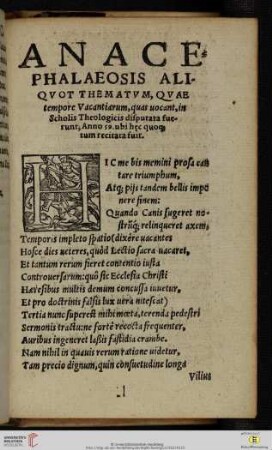 ANACE-
PHALAEOSIS ALI-
QVOT THEMATVM, QVAE
tempore Vacantiarum, quas uocant, in
Scholis Theologicis disputata fue-
runt, Anno 59. ubi hęc quoq;
tum recitata fuit.
HIC me bis memini prosa can
tare triumphum,
Atq; pijs tandem bellis impo
nere finem:
Quando Canis fugeret no-
strũq́; relinqueret axem,
Temporis impleto spatio (dixêre uacantes
Hosce dies ueteres, quòd Lectio sacra uacaret,
Et tantum rerum fieret contentio iusta
Controuersarum: quo sic Ecclesia Christi
Hæresibus multis demum concussa iuuetur,
Et pro doctrinis falsis lux uera nitescat)
Tertia nunc superest mihi meta, terenda pedestri
Sermonis tractu: ne fortè recocta frequenter,
Auribus ingeneret lassis fastidia crambe.
Nam nihil in quauis rerum ratione uidetur,
Tam precio dignum, quin consuetudine longa
Vilius